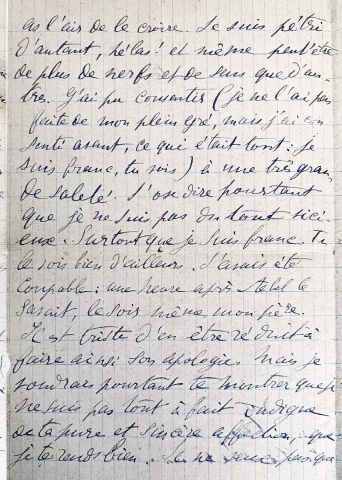 as l'air de le croire. Je suis pétri
d'autant, hélas! et même peut-être
de plus de nerfs et de sens que d'au-
tres. J'ai pu consentir (je ne l'ai pas
faite de mon plein gré, mais j'ai con
senti avant, ce qui était tout: je
suis franc, tu vois) à une très gran
de saleté. J'ose dire pourtant
que je ne suis pas du tout vici-
eux. Surtout que je suis franc. Tu
le vois bien d'ailleurs. J'avais été
coupable: une heure après le
savait, le soir même mon père.
Il est triste d'en être réduit à
faire ainsi son apologie. Mais je
voudrais pourtant te montrer que je
ne suis pas tout à fait indigne
de ta pure et sincère affection, que
je te rends bien. Je ne pas que